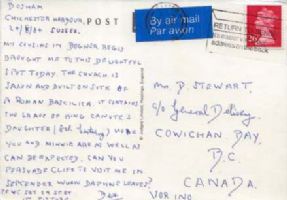 BOSHAM
CHICHESTER HARBOUR,
SUSSEX.
MY COUSINS IN BOGNOR REGIS
BROUGHT ME TO THIS DELIGHTFUL
SPOT TODAY. THE CHURCH IS
SAXON AND BUILT ON SITE OF
A ROMAN BASILICA. IT CONTAINS
THE GRAVE OF KING CANUTE'S
DAUGHTER HOPE
YOU AND MINNIE ARE AS WELL AS
CAN BE EXPECTED. CAN YOU
PERSUADE CLIFF TO VISIT ME IN
SEPTEMBER WHEN DAPHNE LEAVES?
POST
By air mail
Par avion
RETURN
ADDRESS ON THE BACK
MR. D. STEWART.
c/o General Delivery
COWICHAN BAY,
B.C.
CANADA.
VOR 1N0